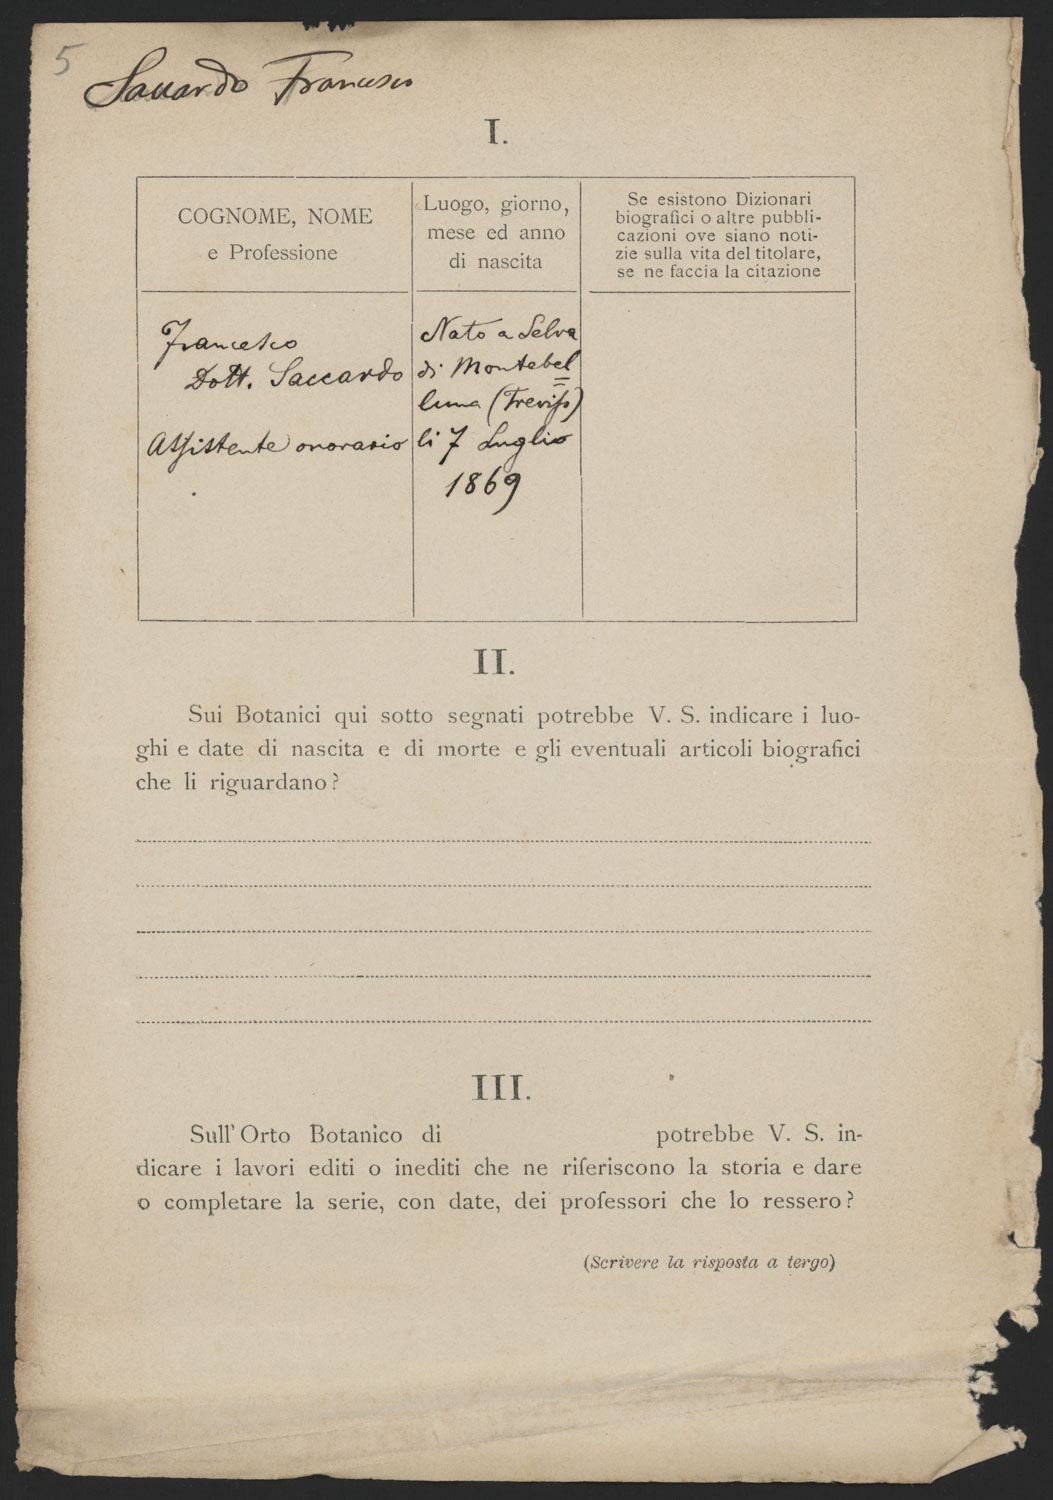 5
Saccardo Francesco
I.
COGNOME, NOME
e Professione
Luogo, giorno,
mese ed anno
di nascita
Se esistono Dizionari
biografici o altre pubbli-
cazioni ove siano noti-
zie sulla vita del titolare,
se ne faccia la citazione
Francesco
Dott. Saccardo
Assistente onorario
Nato a Selva
di Montebel
luna (Treviso)
li 7 Luglio
1869
II.
Sui Botanici qui sotto segnati potrebbe V. S. indicare i luo-
ghi e date di nascita e di morte e gli eventuali articoli biografici
che li riguardano?
III.
Sull' Orto Botanico di potrebbe V. S. in-
dicare i lavori editi o inediti che ne riferiscono la storia e dare
o completare la serie, con date, dei professori che lo ressero?
(Scrivere la risposta a tergo)